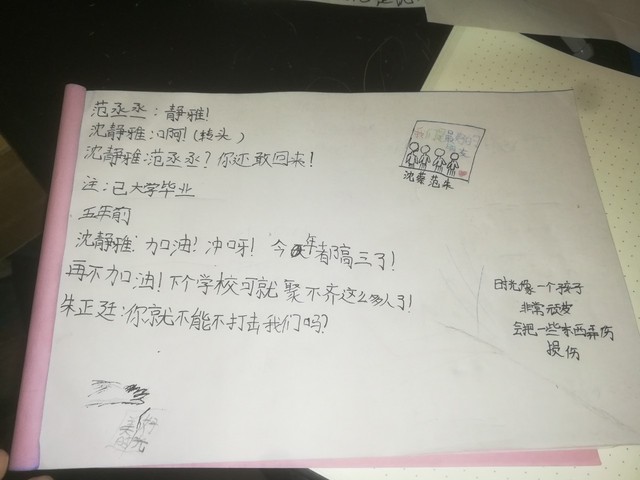 范丞丞：静雅！
沈静雅：口阿！（转头）
沈静雅：范丞丞？你还敢回来！
注：已大学毕业
五年前
沈静雅：加油！冲呀！今年都高三了！
再不加油！下个学校可就聚不齐这么多人了！
朱正廷：你就不能不打击我们吗？
沈蔡范朱
时光像一个孩子
非常顽皮
会把一些东西弄伤
损伤
美好
时光